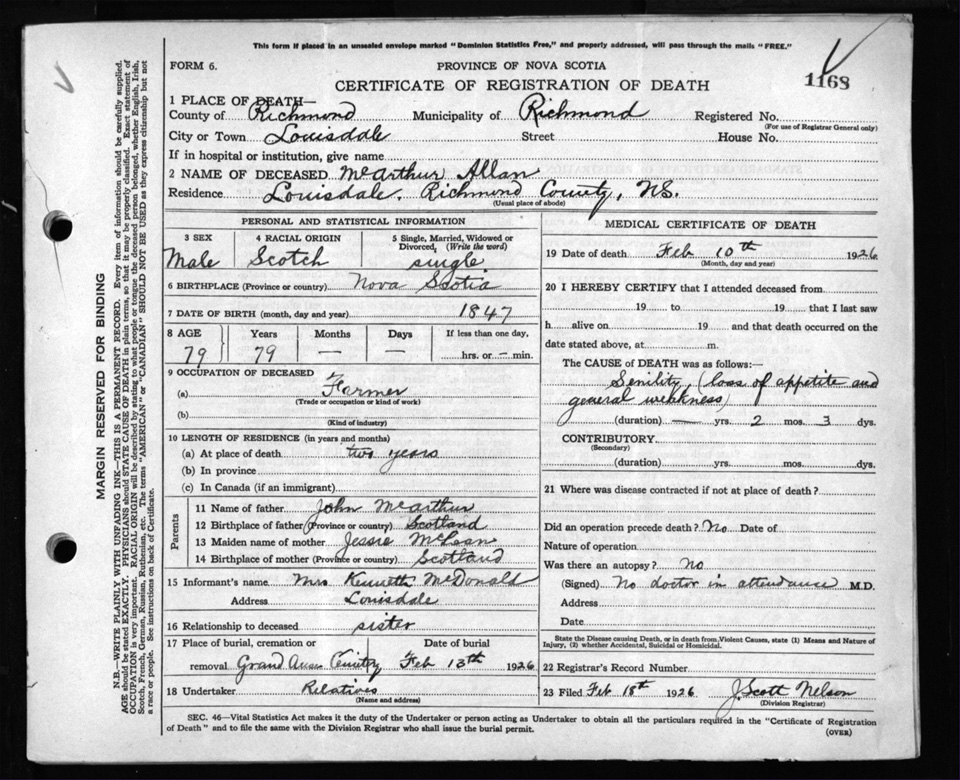 This form if placed in an unsealed envelope marked "Dominion Statistics Free," and properly addressed, will pass through the mails "FREE."
FORM 6.
PROVINCE OF NOVA SCOTIA
CERTIFICATE OF REGISTRATION OF DEATH
1168
1 PLACE OF DEATH—
County of Richmond Municipality of Richmond Registered No.
(For use of Registrar General only)
City or Town Louisdale Street House No.
If in hospital or institution, give name
2 NAME OF DECEASED McArthur Allan
Residence Louisdale. Richmond County, NS.
(Usual place of abode)
PERSONAL AND STATISTICAL INFORMATION
3 SEX Male
4 RACIAL ORIGIN Scotch
5 Single, Married, Widowed or Divorced, (Write the word) single
6 BIRTHPLACE (Province or country) Nova Scotia
7 DATE OF BIRTH (month, day and year) 1847
8 AGE Years Months Days If less than one day,
79 79 — — hrs. or — min.
9 OCCUPATION OF DECEASED
(a) Farmer
(Trade or occupation or kind of work)
(b)
(Kind of industry)
10 LENGTH OF RESIDENCE (in years and months)
(a) At place of death two years
(b) In province
(c) In Canada (if an immigrant)
Parents
11 Name of father John McArthur
12 Birthplace of father (Province or country) Scotland
13 Maiden name of mother Jessie McLean
14 Birthplace of mother (Province or country) Scotland
15 Informant's name Mrs. Kenneth McDonald
Address Louisdale
16 Relationship to deceased sister
17 Place of burial, cremation or removal Date of burial
Grand Anse Cemitry Feb 13th 1926
18 Undertaker Relatives
(Name and address)
MEDICAL CERTIFICATE OF DEATH
19 Date of death Feb 10th 1926
(Month, day and year)
20 I HEREBY CERTIFY that I attended deceased from
19 to 19 that I last saw
h alive on 19 and that death occurred on the
date stated above, at m.
The CAUSE of DEATH was as follows:—
Senility, (loss of appetite and
general weakness)
(duration) — yrs. 2 mos. 3 dys.
CONTRIBUTORY
(Secondary)
(duration) yrs. mos. dys.
21 Where was disease contracted if not at place of death?
Did an operation precede death? No Date of
Nature of operation
Was there an autopsy? No
(Signed) No doctor in attendance M.D.
Address
Date
State the Disease causing Death, or in death from Violent Causes, state (1) Means and Nature of
Injury, (2) whether Accidental, Suicidal or Homicidal.
22 Registrar's Record Number
23 Filed Feb 18th 1926 J. Scott Nelson
(Division Registrar)
SEC. 46—Vital Statistics Act makes it the duty of the Undertaker or person acting as Undertaker to obtain all the particulars required in the "Certificate of Registration
of Death" and to file the same with the Division Registrar who shall issue the burial permit.
(OVER)
MARGIN RESERVED FOR BINDING
N.B.—WRITE PLAINLY WITH UNFADING INK—THIS IS A PERMANENT RECORD. Every item of information should be carefully supplied.
AGE should be stated EXACTLY. PHYSICIANS should STATE CAUSE OF DEATH in plain terms, so that it may be properly classified. Exact statement of
OCCUPATION is very important. RACIAL ORIGIN will be described by stating to what people or tongue the deceased person belonged, whether English, Irish,
Scotch, French, German, Russian, Ruthenian, etc. The terms "AMERICAN" or "CANADIAN" SHOULD NOT BE USED as they express citizenship but not
a race or people. See instructions on back of Certificate.